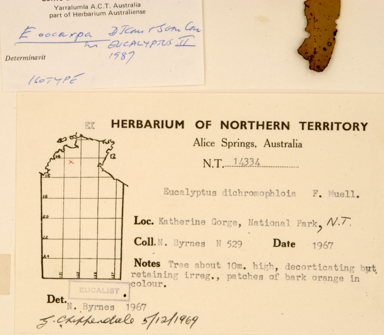 Yarralumla A.C.T. Australia
part of Herbarium Australiense
E oocarpa
in EUCALYPTUS II
Determinavit
1987
ISOTYPE
EX HERBARIUM OF NORTHERN TERRITORY
Alice Springs, Australia
N.T. 14334
Eucalyptus dichromophloia F. Muell.
Loc. Katherine Gorge, National Park, N.T.
Coll. N. Byrnes N 529 Date 1967
Notes Tree about 10m. high, decorticating but
retaining irreg., patches of bark orange in
colour.
EUCALIST
Det. N. Byrnes 1967
G. Chippendale 5/12/1969